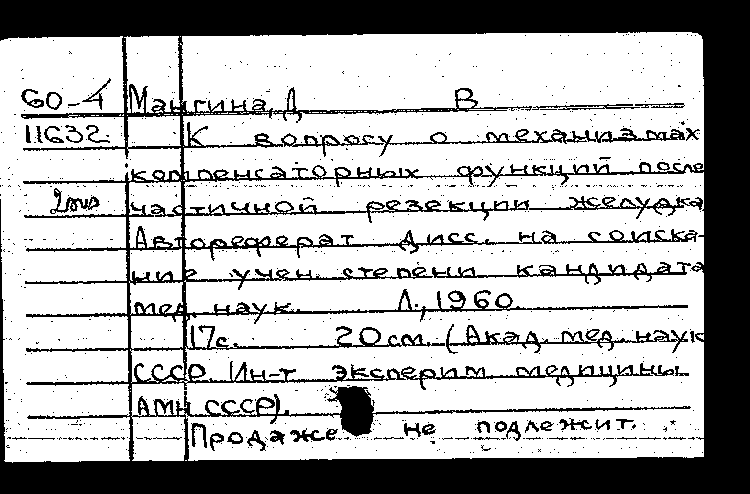 60-4 Мангина, Д В
11632. К вопросу о механизмах
компенсаторных функций после
2экз частичной резекции желудка
Автореферат дисс. на соиска-
ние учен. степени кандидата
мед. наук. Л., 1960
17с. 20см. (Акад. мед. наук
СССР. Ин-т эксперим. медицины
АМН СССР).
Продаже не подлежит.